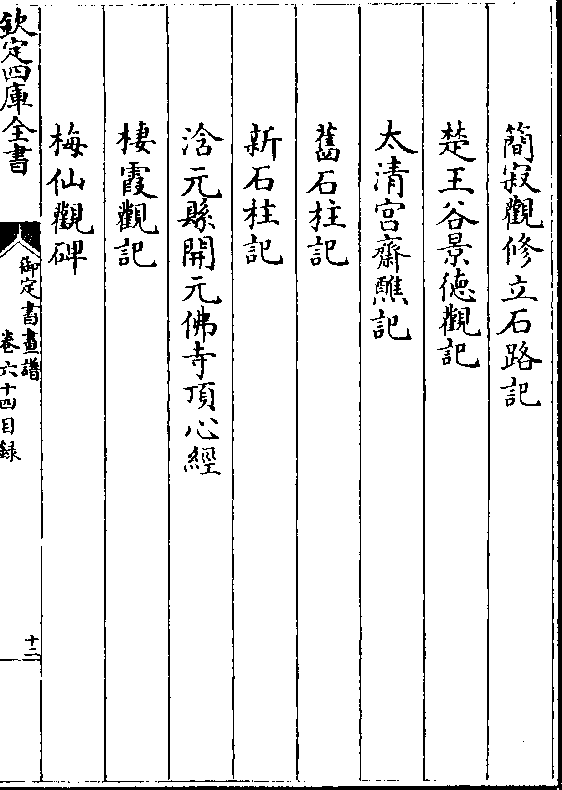 簡寂觀修立石路記
楚王谷景徳觀記
太清宮齋醮記
舊石柱記
新石柱記
浛元縣開元佛寺頂心經
棲霞觀記
梅仙觀碑
欽定四庫全書
御定書畫譜
卷六十四目録
十二